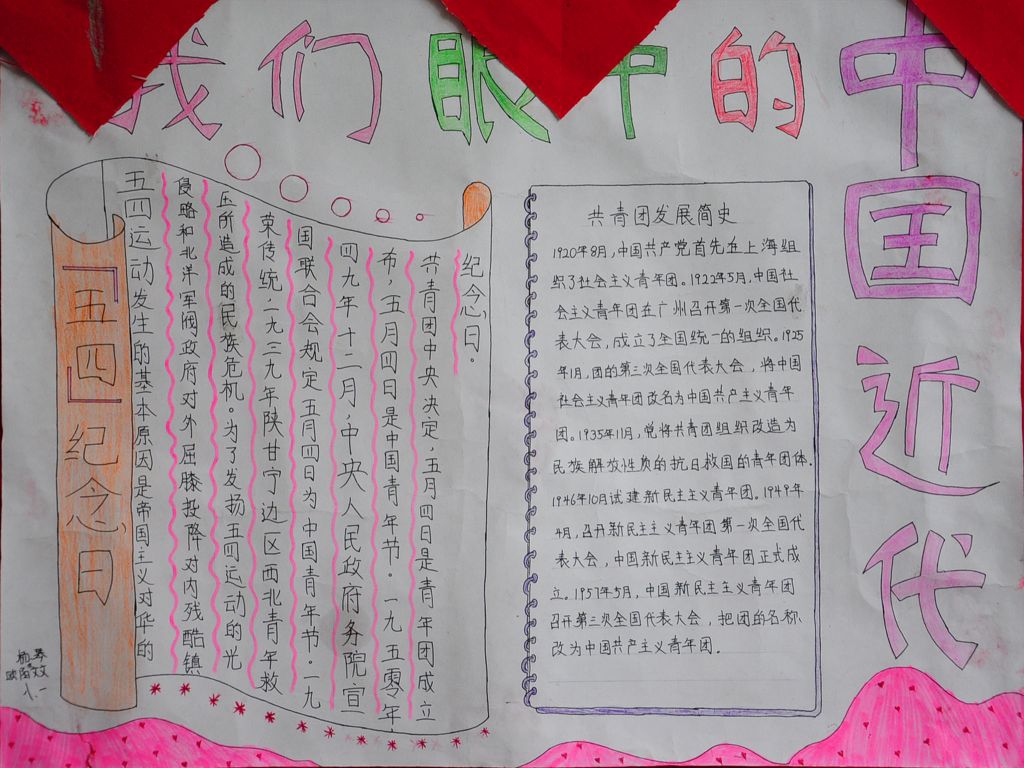 我们眼中的中国近代
『五四』纪念日
五四运动发生的基本原因是帝国主义对华的
侵略和北洋军阀政府对外屈膝投降对内残酷镇
压所造成的民族危机。为了发扬五四运动的光
荣传统,一九三九年陕甘宁边区西北青年救
国联合会规定五月四日为中国青年节。一九
四九年十二月,中央人民政府务院宣
布,五月四日是中国青年节。一九五零年
共青团中央决定,五月四日是青年团成立
纪念日。
共青团发展简史
1920年8月,中国共产党首先在上海组
织了社会主义青年团。1922年5月,中国社
会主义青年团在广州召开第一次全国代
表大会,成立了全国统一的组织。1925
年1月,团的第三次全国代表大会,将中国
社会主义青年团改名为中国共产主义青年
团。1935年11月,党将共青团组织改造为
民族解放性质的抗日救国的青年团体.
1946年10月试建新民主主义青年团。1949年
4月,召开新民主主义青年团第一次全国代
表大会,中国新民主主义青年团正式成
立。1957年5月,中国新民主主义青年团
召开第三次全国代表大会,把团的名称
改为中国共产主义青年团.
八.一